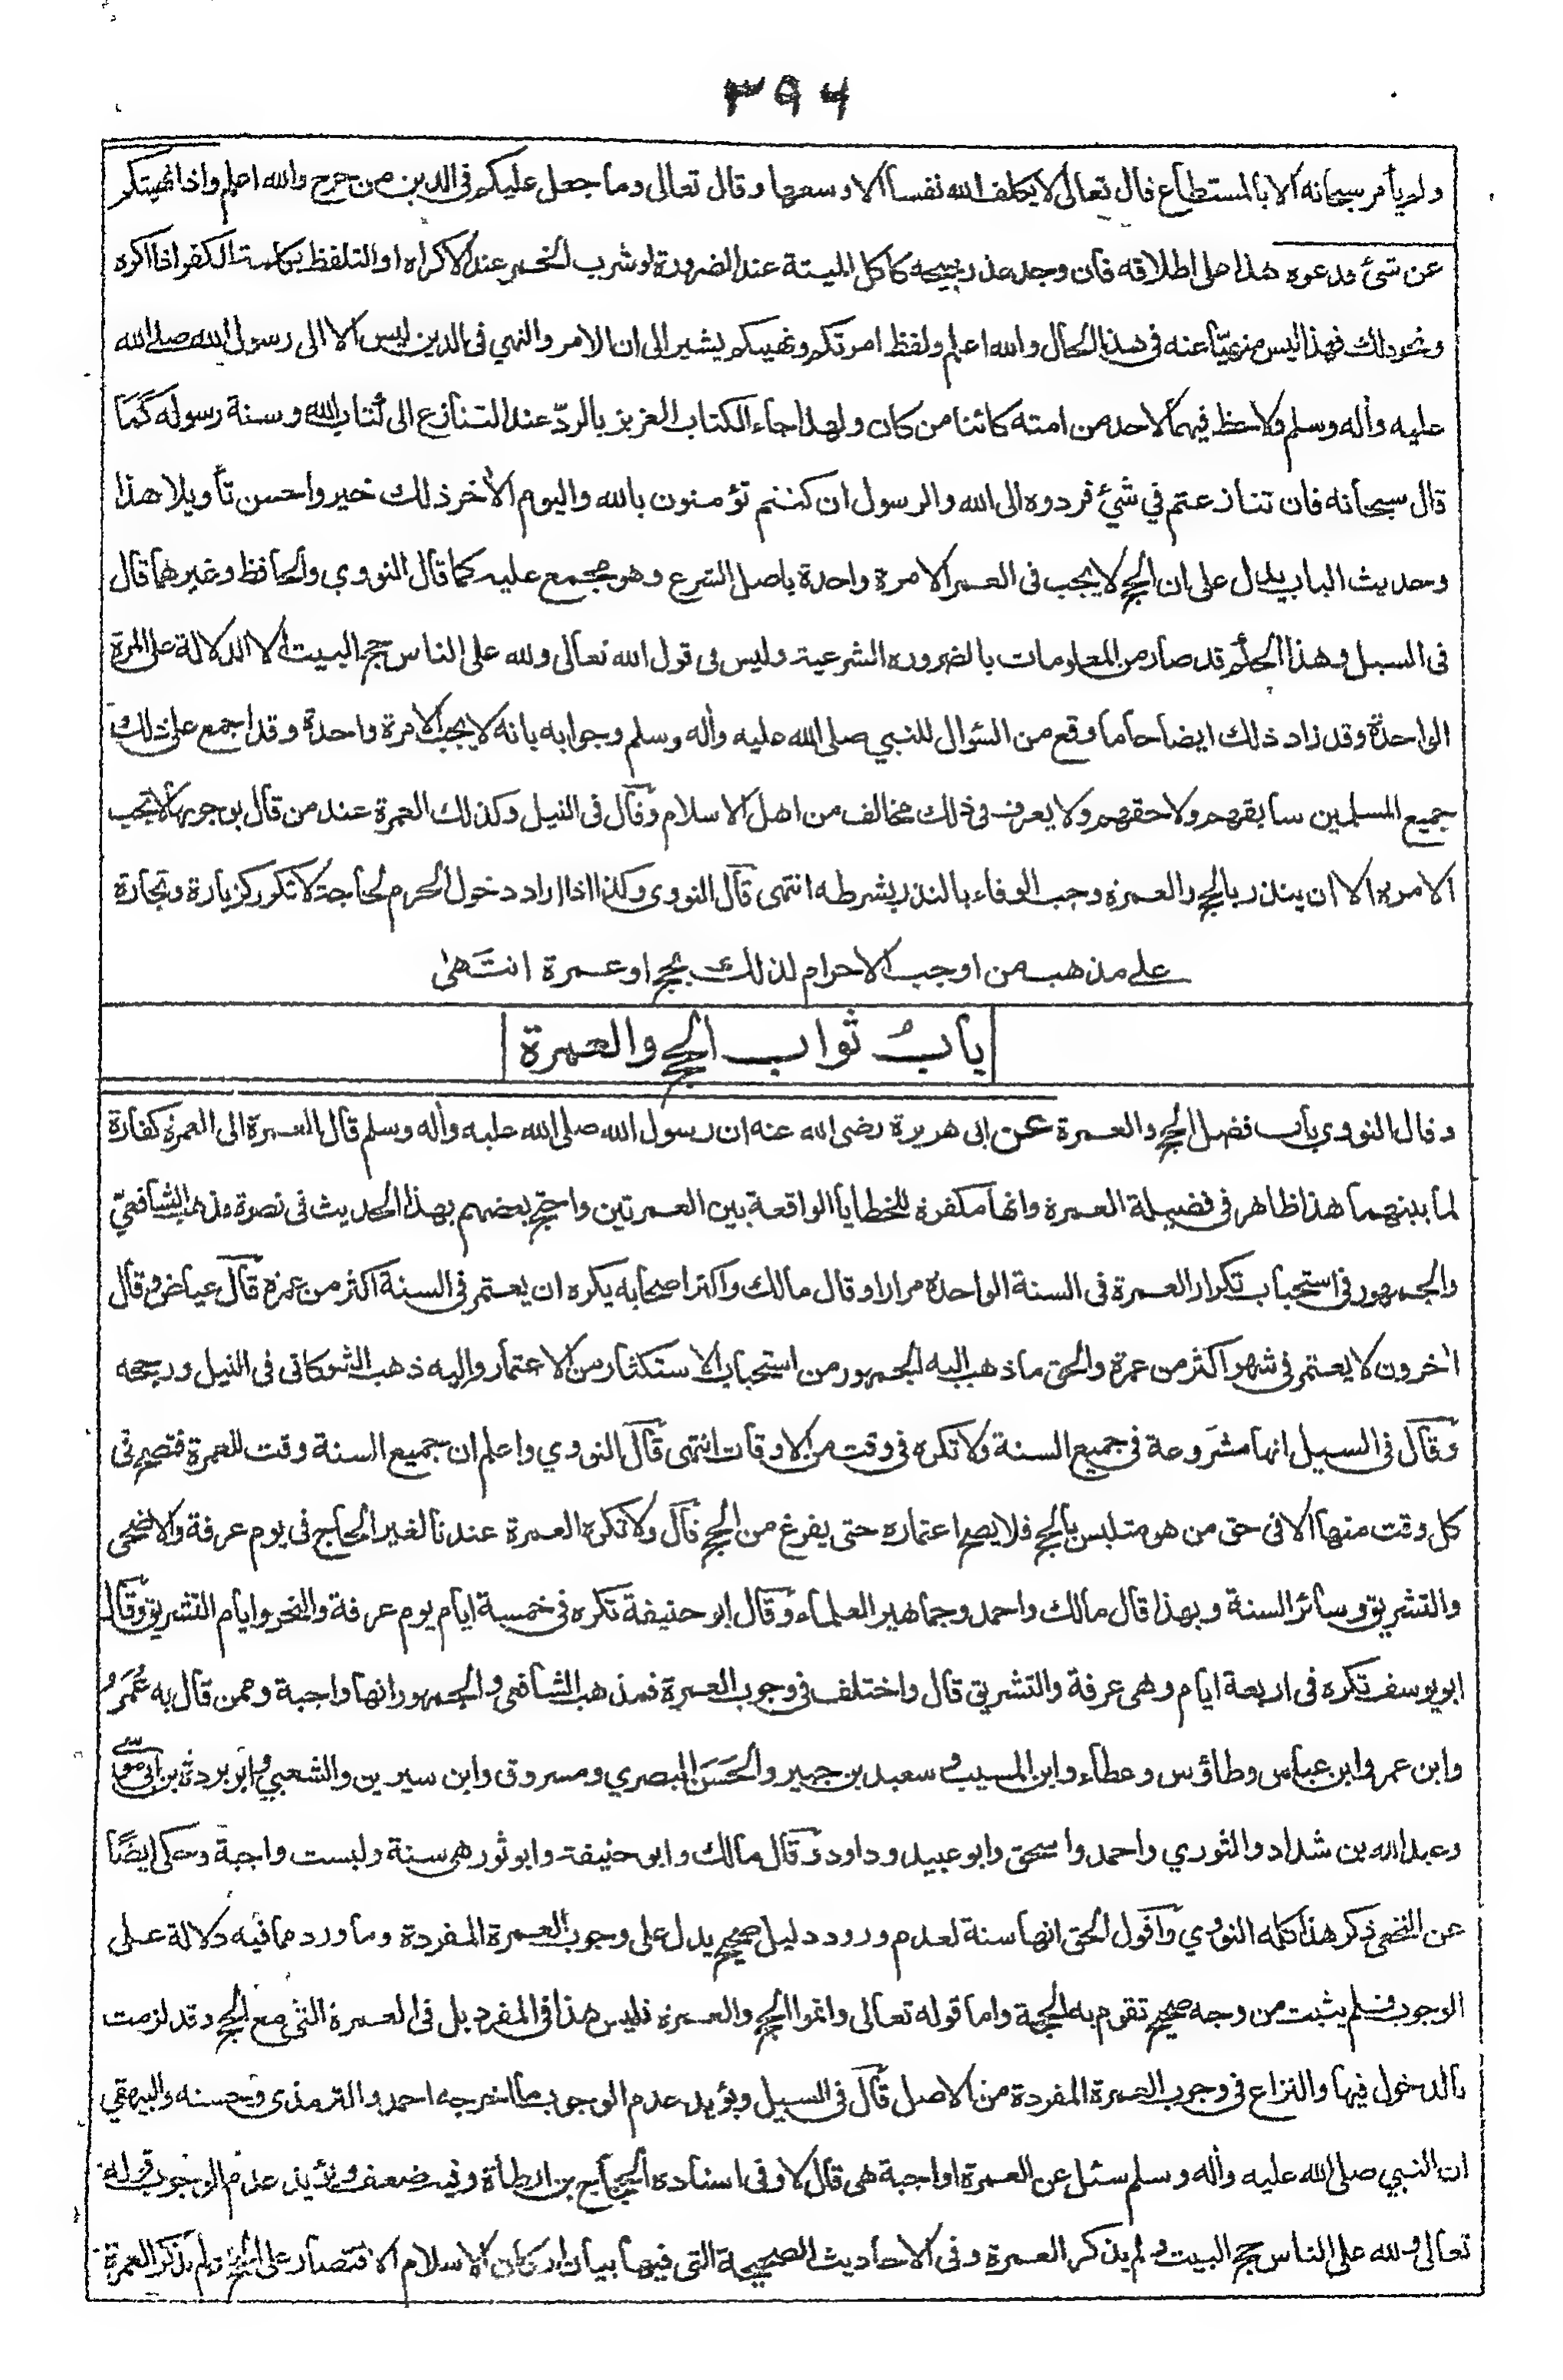 ٣٩٦
ولم يأمر سبحانه الا بالمستطاع قال تعالى لا يكلف الله نفسا الا وسعها وقال تعالى وما جعل عليكم فى الدين من حرج والله اعلم واذا نهيتكم
عن شئ فدعوه هذا على اطلاقه فان وجد عذر يبيحه كاكل الميتة عند الضرورة او شرب الخمر عند الاكراه او التلفظ بكلمة الكفر اذا اكره
ونحو ذلك فهذا ليس منهيّا عنه فى هذا الحال والله اعلم ولفظ امرتكم ونهيتكم يشير الى ان الامر والنهي فى الدين ليس الا الى رسول الله صلى الله
عليه وأله وسلم ولاحظ فيهما لاحد من امته كائنا من كان ولهذا جاء الكتاب العزيز بالردّ عند التنازع الى كتاب الله وسنة رسوله كَمَا
قال سبحانه فان تنازعتم في شئ فردوه الى الله والرسول ان كنتم تؤمنون بالله واليوم الأخر ذلك خير واحسن تأويلا هذا
وحديث الباب يدل على ان الحج لا يجب فى العمر الا مرة واحدة باصل الشرع وهو مجمع عليه كما قال النووي والحافظ وغيرهما قال
فى السبل وهذا الحكم قد صار من المعلومات بالضروره الشرعية وليس فى قول الله تعالى ولله على الناس حج البيت الا الدلالة على المرة
الواحدة وقد زاد ذلك ايضاحا ما وقع من السؤال للنبي صلى الله عليه وأله وسلم وجوابه بانه لا يجب الا مرة واحدة وقد اجمع على ذلك
جميع المسلمين سابقهم ولاحقهم ولا يعرف فى ذلك مخالف من اهل الاسلام وقال فى النيل وكذلك العمرة عند من قال بوجوبها لا تجب
الا مرة الا ان ينذر بالحج والعمرة وجب الوفاء بالنذر بشرطه انتهى قال النووى وكذا اذا اراد دخول الحرم لحاجة لا تكرر كزيارة وتجارة
على مذهب من اوجب الاحرام لذلك بحج او عمرة انتَهىٰ
بابُ ثواب الحج والعمرة
وقال النووي باب فضل الحج والعمرة عن ابى هريرة رضى الله عنه ان رسول الله صلى الله عليه وأله وسلم قال العمرة الى العمرة كفارة
لما بينهما هذا ظاهر فى فضيلة العمرة وانها مكفرة للخطايا الواقعة بين العمرتين واحتج بعضهم بهذا الحديث فى نصرة مذهب الشافعيّ
والجمهور فى استحباب تكرار العمرة فى السنة الواحدة مرارا وقال مالك واكثر اصحابه يكره ان يعتمر فى السنة اكثر من عمرة قال عياض وقال
أخرون لا يعتمر فى شهر اكثر من عمرة والحق ما ذهب اليه الجمهور من استحباب الاستكثار من الاعتمار واليه ذهب الشوكانى فى النيل ورجحه
وقال فى السبل انها مشروعة فى جميع السنة ولا تكره فى وقت من الاوقات انتهى قال النووي واعلم ان جميع السنة وقت للعمرة فتصح فى
كل وقت منها الا فى حق من هو متلبس بالحج فلا يصح اعتماره حتى يفرغ من الحج قال ولا تكره العمرة عندنا لغير الحاج فى يوم عرفة والاضحى
والتشريق وسائر السنة وبهذا قال مالك واحمد وجماهير العلماء وقال ابو حنيفة تكره فى خمسة ايام يوم عرفة والنحر وايام التشريق وقال
ابو يوسف تكره فى اربعة ايام وهى عرفة والتشريق قال واختلف فى وجوب العمرة فمذهب الشافعى والجمهور انها واجبة وممن قال به عُمَرُ
وابن عمر وابن عباس وطاؤس وعطاء وابن المسيب و سعيد بن جبير والحَسَن البصري ومسروق وابن سيرين والشعبي وابو بردة بن ابى موسىٰ
وعبد الله بن شداد والثوري واحمد واسحق وابو عبيد وداود وقال مالك وابو حنيفة وابو ثور هى سنة وليست واجبة وحكى ايضًا
عن النخعى ذكر هذا كله النووي واقول الحق انها سنة لعدم ورود دليل صحيح يدل على وجوب العمرة المفردة وما ورد مما فيه دلالة على
الوجوب فلم يثبت من وجه صحيح تقوم به الحجة واما قوله تعالى واتموا الحج والعمرة فليس هذا فى المفرد بل فى العمرة التى مع الحج وقد لزمت
بالدخول فيها والنزاع فى وجوب العمرة المفردة من الاصل قال فى السبل ويؤيد عدم الوجوب ما اخرجه احمد والترمذى وحسنه والبيهقي
ان النبي صلى الله عليه وأله وسلم سئل عن العمرة اواجبة هى قال لا وفى اسناده الحجاج بن ارطاة وفيه ضعف ويؤيد عدم الوجوب قوله
تعالى ولله على الناس حج البيت ولم يذكر العمرة وفى الاحاديث الصحيحة التى فيها بيان اركان الاسلام الاقتصار على الحج ولم يذكر العمرة